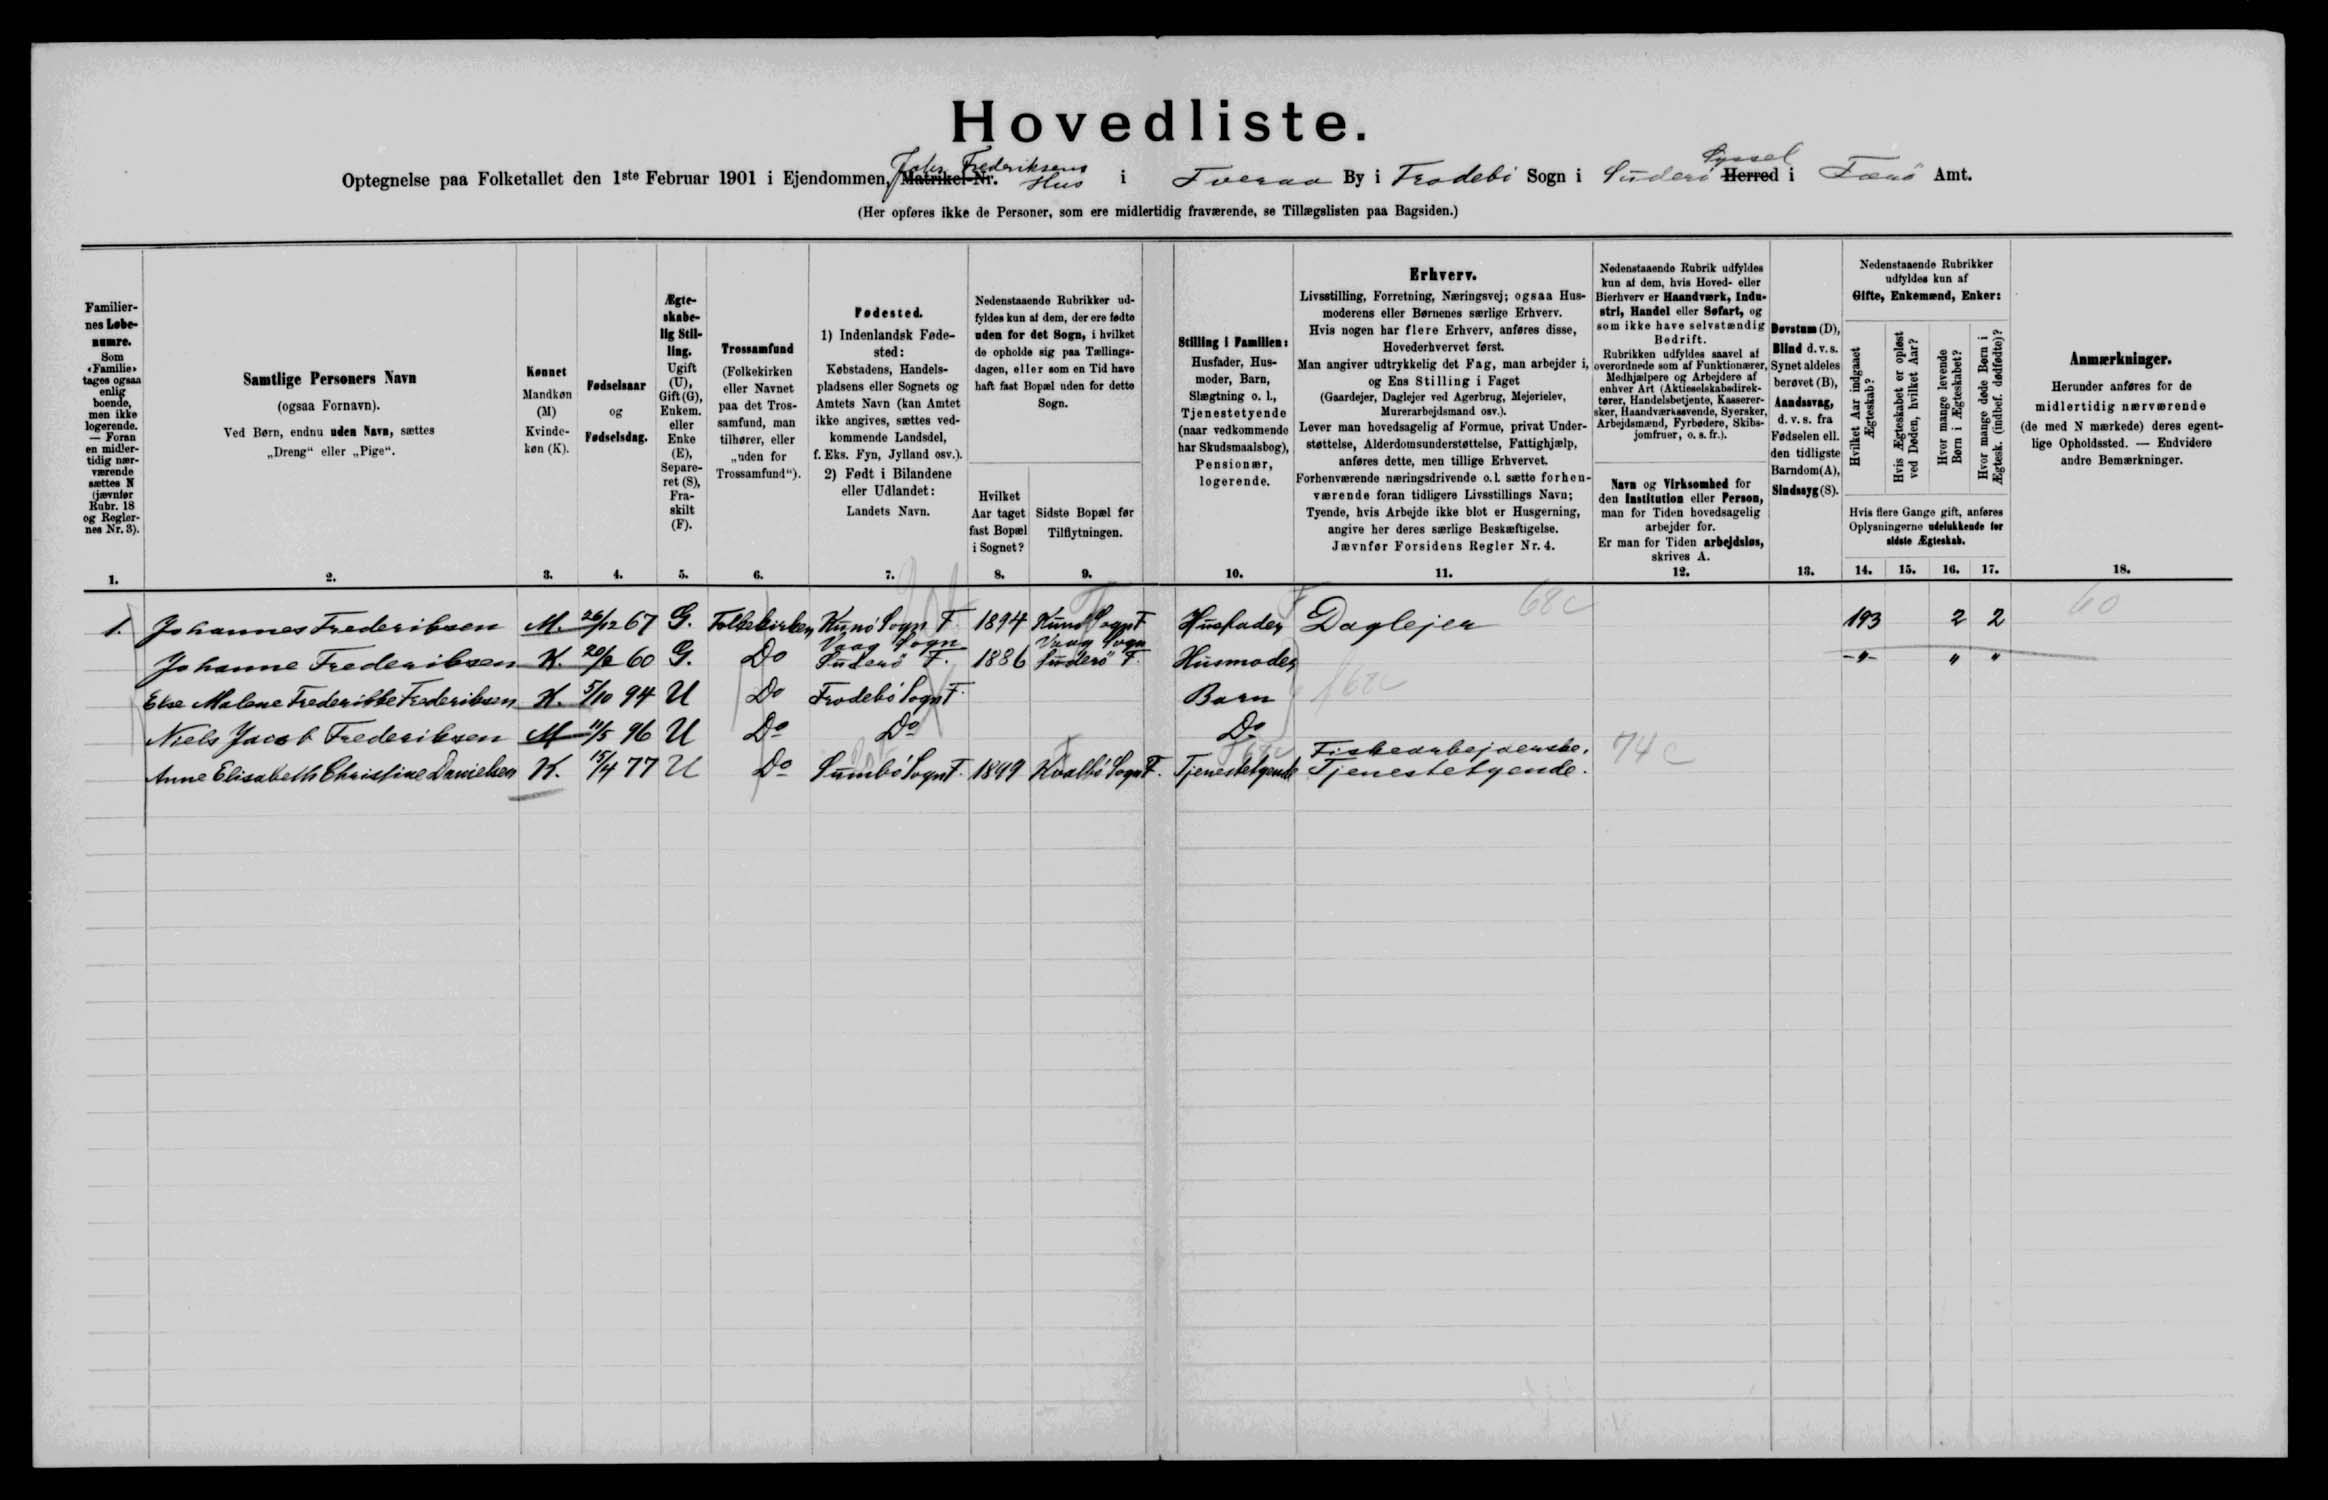 Hovedliste.
Optegnelse paa Folketallet den 1ste Februar 1901 i Ejendommen, Matrikel-Nr. Johs. Frederiksens Hus i Tveraa By i Frodebö Sogn i Suderö Herred Syssel i Færö Amt.
(Her opføres ikke de Personer, som ere midlertidig fraværende, se Tillægslisten paa Bagsiden.)
Familier-
nes Løbe-
numre.
Som
«Familie»
tages ogsaa
enlig
boende,
men ikke
logerende.
— Foran
en midler-
tidig nær-
værende
sættes N
(jævnfør
Rubr. 18
og Regler-
nes Nr. 3).
1.
Samtlige Personers Navn
(ogsaa Fornavn).
Ved Børn, endnu uden Navn, sættes
„Dreng“ eller „Pige“.
2.
Kønnet
Mandkøn
(M)
Kvinde-
køn (K).
3.
Fødselsaar
og
Fødselsdag.
4.
Ægte-
skabe-
lig Stil-
ling.
Ugift
(U),
Gift (G),
Enkem.
eller
Enke
(E),
Separe-
ret (S),
Fra-
skilt
(F).
5.
Trossamfund
(Folkekirken
eller Navnet
paa det Tros-
samfund, man
tilhører, eller
„uden for
Trossamfund“).
6.
Fødested.
1) Indenlandsk Føde-
sted:
Købstadens, Handels-
pladsens eller Sognets og
Amtets Navn (kan Amtet
ikke angives, sættes ved-
kommende Landsdel,
f. Eks. Fyn, Jylland osv.).
2) Født i Bilandene
eller Udlandet:
Landets Navn.
7.
Nedenstaaende Rubrikker ud-
fyldes kun af dem, der ere fødte
uden for det Sogn, i hvilket
de opholde sig paa Tællings-
dagen, eller som en Tid have
haft fast Bopæl uden for dette
Sogn.
Hvilket
Aar taget
fast Bopæl
i Sognet?
8.
Sidste Bopæl før
Tilflytningen.
9.
Stilling i Familien:
Husfader, Hus-
moder, Barn,
Slægtning o. l.,
Tjenestetyende
(naar vedkommende
har Skudsmaalsbog),
Pensionær,
logerende.
10.
Erhverv.
Livsstilling, Forretning, Næringsvej; ogsaa Hus-
moderens eller Børnenes særlige Erhverv.
Hvis nogen har flere Erhverv, anføres disse,
Hovederhvervet først.
Man angiver udtrykkelig det Fag, man arbejder i,
og Ens Stilling i Faget
(Gaardejer, Daglejer ved Agerbrug, Mejerielev,
Murerarbejdsmand osv.).
Lever man hovedsagelig af Formue, privat Under-
støttelse, Alderdomsunderstøttelse, Fattighjælp,
anføres dette, men tillige Erhvervet.
Forhenværende næringsdrivende o. l. sætte forhen-
værende foran tidligere Livsstillings Navn;
Tyende, hvis Arbejde ikke blot er Husgerning,
angive her deres særlige Beskæftigelse.
Jævnfør Forsidens Regler Nr. 4.
11.
Nedenstaaende Rubrik udfyldes
kun af dem, hvis Hoved- eller
Bierhverv er Haandværk, Indu-
stri, Handel eller Søfart, og
som ikke have selvstændig
Bedrift.
Rubrikken udfyldes saavel af
overordnede som af Funktionærer,
Medhjælpere og Arbejdere af
enhver Art (Aktieselskabsdirek-
tører, Handelsbetjente, Kasserer-
sker, Haandværkssvende, Syersker,
Arbejdsmænd, Fyrbødere, Skibs-
jomfruer, o. s. fr.).
Navn og Virksomhed for
den Institution eller Person,
man for Tiden hovedsagelig
arbejder for.
Er man for Tiden arbejdsløs,
skrives A.
12.
Døvstum (D),
Blind d. v. s.
Synet aldeles
berøvet (B),
Aandssvag,
d. v. s. fra
Fødselen ell.
den tidligste
Barndom (A),
Sindssyg (S).
13.
Nedenstaaende Rubrikker
udfyldes kun af
Gifte, Enkemænd, Enker:
Hvilket Aar indgaaet
Ægteskab?
Hvis Ægteskabet er opløst
ved Døden, hvilket Aar?
Hvor mange levende
Børn i Ægteskabet?
Hvor mange døde Børn i
Ægtesk. (indbef. dødfødte)?
Hvis flere Gange gift, anføres
Oplysningerne udelukkende for
sidste Ægteskab.
14. 15. 16. 17.
Anmærkninger.
Herunder anføres for de
midlertidig nærværende
(de med N mærkede) deres egent-
lige Opholdssted. — Endvidere
andre Bemærkninger.
18.
1. Johannes Frederiksen M. 26/12 67 G. Folkekirken Kunö Sogn F. 1894 Kunö Sogn F Husfader Daglejer 68c 193 2 2 60
Johanne Frederiksen K. 20/2 60 G. Do Vaag Sogn Suderö F. 1886 Vaag Sogn Suderö F. Husmoder -"- " "
Else Malene Frederikke Frederiksen K. 5/10 94 U Do Frodebö Sogn F. Barn f68c
Niels Jacob Frederiksen M 11/5 96 U Do Do Do
Anne Elisabeth Christine Danielsen K. 15/4 77 U Do Sumbö Sogn F. 1899 Kvalbö Sogn F. Tjenestetyende Fiskearbejderske. Tjenestetyende. 74c